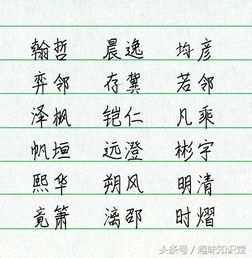 翰哲 晨逸 均彦
弈邻 存冀 若邻
泽枫 铠仁 凡乘
帆垣 远澄 彬宇
熙华 朔风 明清
竟箫 漓邵 时熠
头条号 / 趣味知识堂